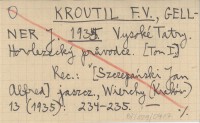 O KROUTIL F.V., GELL-
NER J.: 1935 Vysoké Tatry.
Horolezecký průvodce. [Tom I]
Rec.: "[Szczepański Jan
Alfred] jaszcz., Wierchy (Kraków)
13 (1935): 234-235.